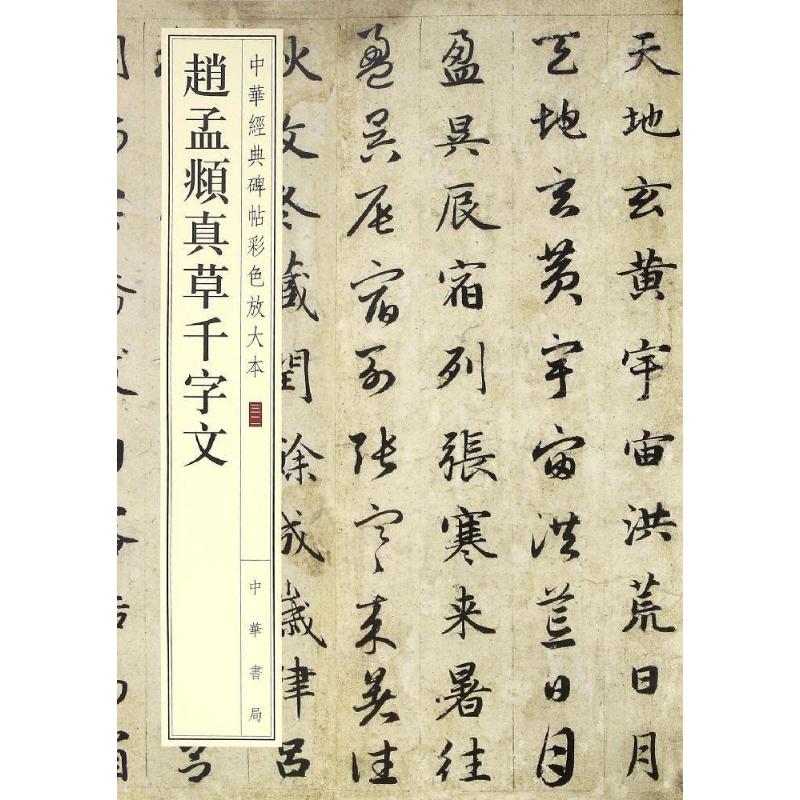 天地玄黄宇宙洪荒日月
天地玄黄宇宙洪荒日月
盈昃辰宿列張寒来暑往
盈昃辰宿列張寒来暑往
秋收冬藏閏餘成歲律呂
中華經典碑帖彩色放大本
三二
中華書局
趙孟頫真草千字文